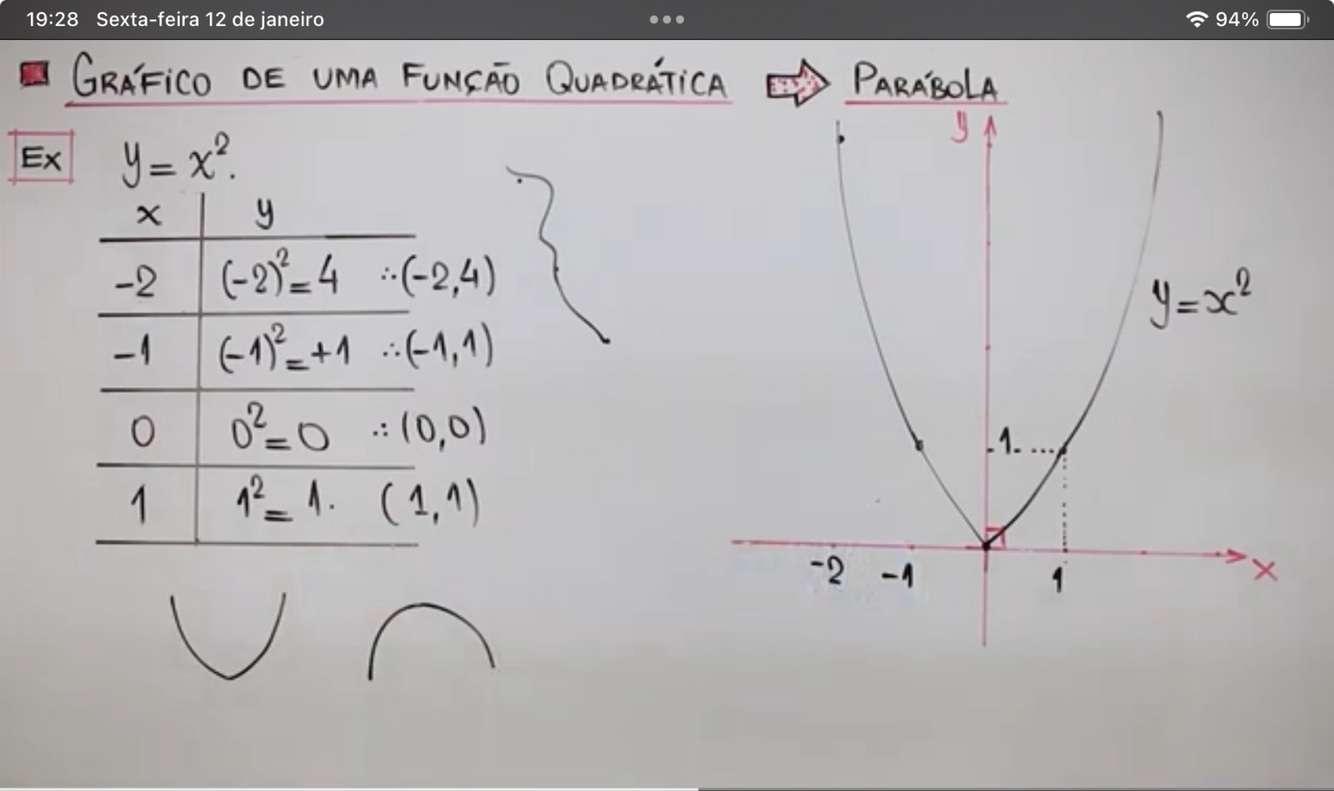 19:28 Sexta-feira 12 de janeiro 94%
GRÁFICO DE UMA FUNÇÃO QUADRÁTICA ⇨ PARÁBOLA
Ex y = x².
x y
-2 (-2)² = 4 ∴ (-2,4)
-1 (-1)² = +1 ∴ (-1,1)
0 0² = 0 ∴ (0,0)
1 1² = 1. (1,1)
y
y = x²
1
-2 -1 1 x